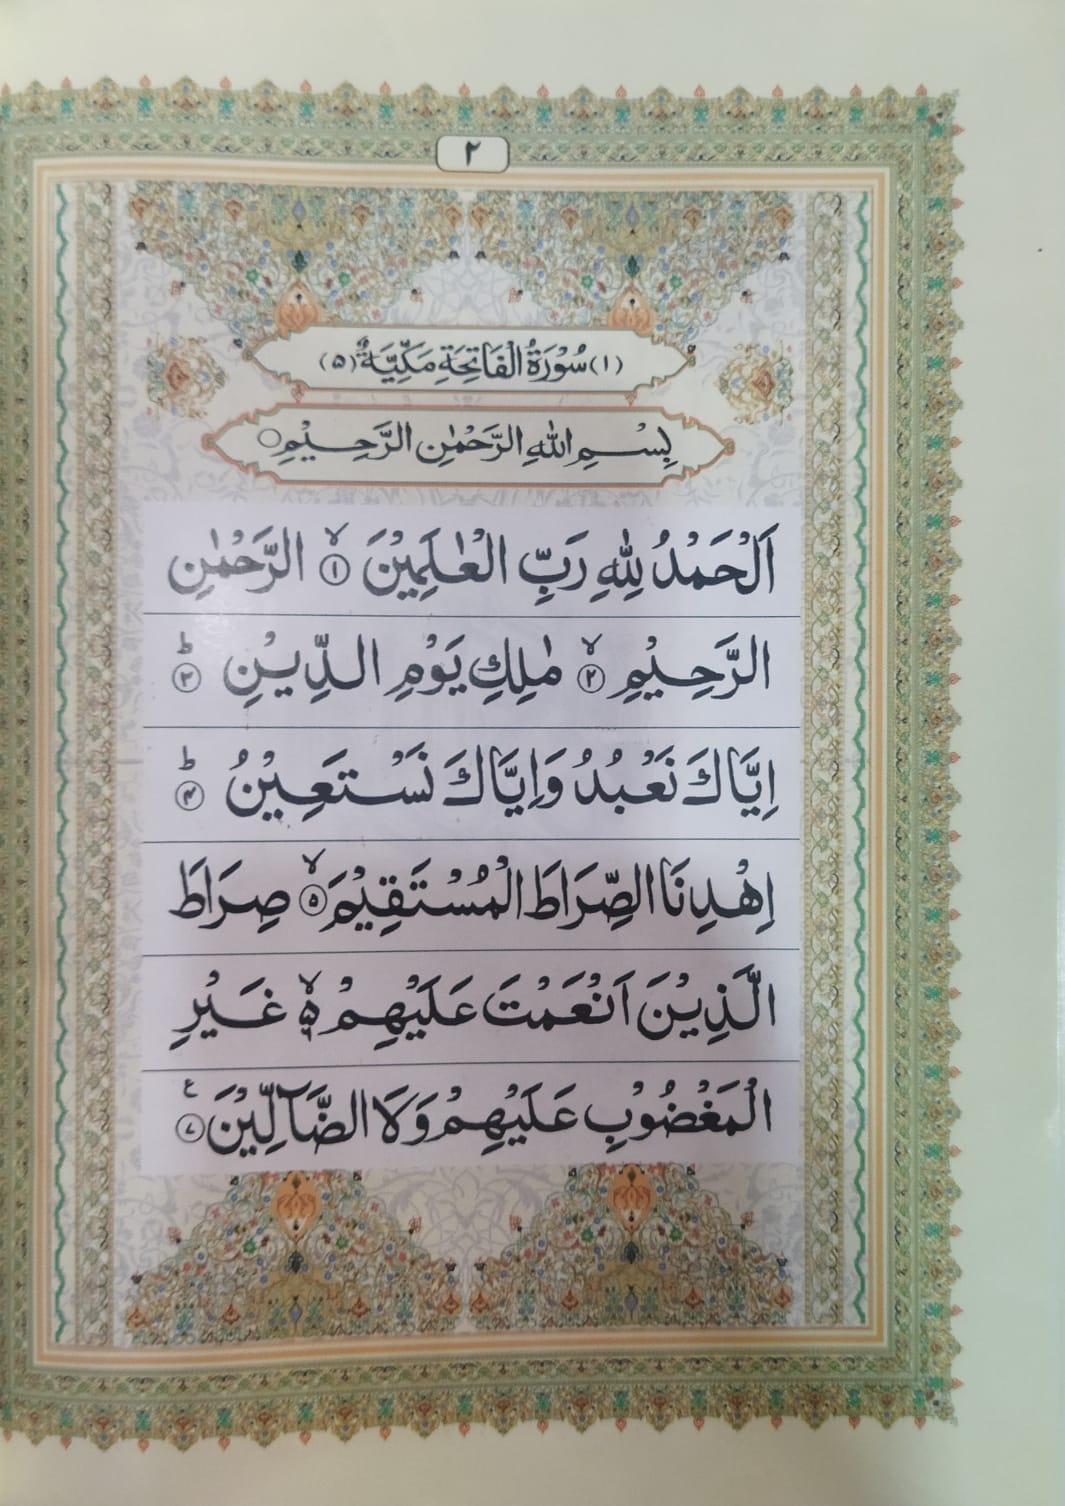 ۲
(۱) سُوْرَةُ الْفَاتِحَةِ مَكِّيَّةٌ (۵)
بِسْمِ اللهِ الرَّحْمٰنِ الرَّحِيْمِ○
اَلْحَمْدُ لِلّٰهِ رَبِّ الْعٰلَمِيْنَ ۙ﴿۱﴾ الرَّحْمٰنِ
الرَّحِيْمِ ۙ﴿۲﴾ مٰلِكِ يَوْمِ الدِّيْنِ ؕ﴿۳﴾
اِيَّاكَ نَعْبُدُ وَاِيَّاكَ نَسْتَعِيْنُ ؕ﴿۴﴾
اِهْدِنَا الصِّرَاطَ الْمُسْتَقِيْمَ ۙ﴿۵﴾ صِرَاطَ
الَّذِيْنَ اَنْعَمْتَ عَلَيْهِمْ ۙ۬ۦ غَيْرِ
الْمَغْضُوْبِ عَلَيْهِمْ وَلَا الضَّآلِّيْنَ ﴿۷﴾ ع